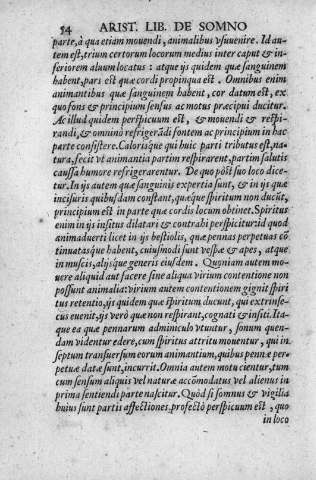 54 ARIST. LIB. DE SOMNO
parte, à qua etiam mouendi, animalibus vsuuenire. Id au-
tem est, trium certorum locorum medijs inter caput & in-
feriorem aluum locatus: atque ijs quidem quæ sanguinem
habent, pars est quæ cordi propinqua est. Omnibus enim
animantibus quæ sanguinem habent, cor datum est, ex
quo fons & principium sensus ac motus præcipui ducitur.
Ac illud quidem perspicuum est, & mouendi & respi-
randi, & omninò refrigerādi fontem ac principium in hac
parte consistere. Calorisque qui huic parti tributus est, na-
tura, fecit vt animantia partim respirarent, partim salutis
caussa humore refrigerarentur. De quo pòst suo loco dice-
tur. In ijs autem quæ sanguinis expertia sunt, & in ijs quæ
incisuris quibusdam constant, quæque spiritum non ducūt,
principium est in parte quæ cordis locum obtinet. Spiritus
enim in ijs insitus dilatari & contrahi perspicitur: id quod
animaduerti licet in ijs bestiolis, quæ pennas perpetuas cō
tinuatasque habent, cuiusmodi sunt vespæ & apes, atque
in muscis, alijsque generis eiusdem. Quoniam autem mo-
uere aliquid aut facere sine aliqua virium contentione non
possunt animalia: virium autem contentionem gignit spiri
tus retentio, ijs quidem quæ spiritum ducunt, qui extrinse-
cus euenit, ijs verò quæ non respirant, cognati & insiti. Ita-
que ea quæ pennarum adminiculo vtuntur, sonum quen-
dam videntur edere, cum spiritus attritu mouentur, qui in
septum transuersum eorum animantium, quibus pennæ per-
petuæ datæ sunt, incurrit. Omnia autem motu cientur, tum
cum sensum aliquis vel naturæ accōmodatus vel alienus in
prima sentiendi parte nascitur. Quòd si somnus & vigilia
huius sunt partis affectiones, profectò perspicuum est, quo
in loco